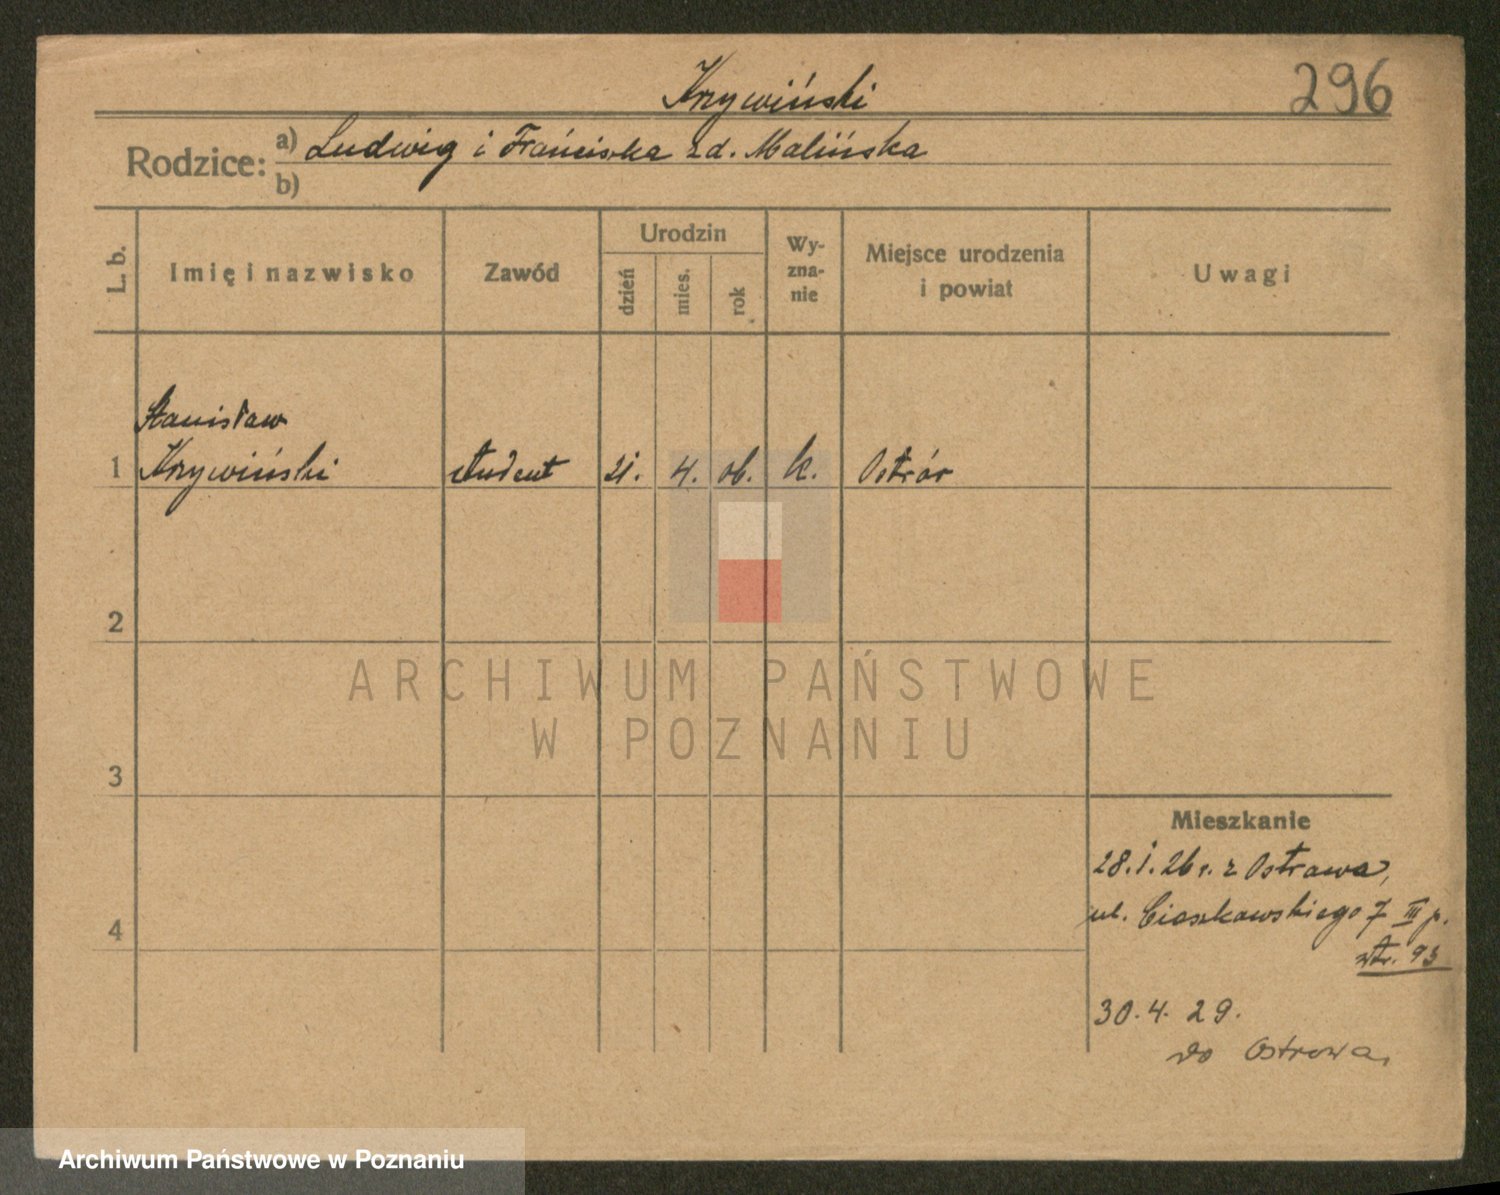 296
Krzywiński
Rodzice: a) Ludwig i Franciszka zd. Malińska
b)
L. b. Imię i nazwisko Zawód Urodzin dzień mies. rok Wy-zna-nie Miejsce urodzenia i powiat Uwagi
Stanisław
1 Krzywiński student 21. 4. 06. k. Ostrów
2
ARCHIWUM PAŃSTWOWE
W POZNANIU
3
Mieszkanie
28.I.26 r. z Ostrowa,
4 ul. Cieszkowskiego 7 III p.
str. 93
30.4.29.
do Ostrowa.
Archiwum Państwowe w Poznaniu